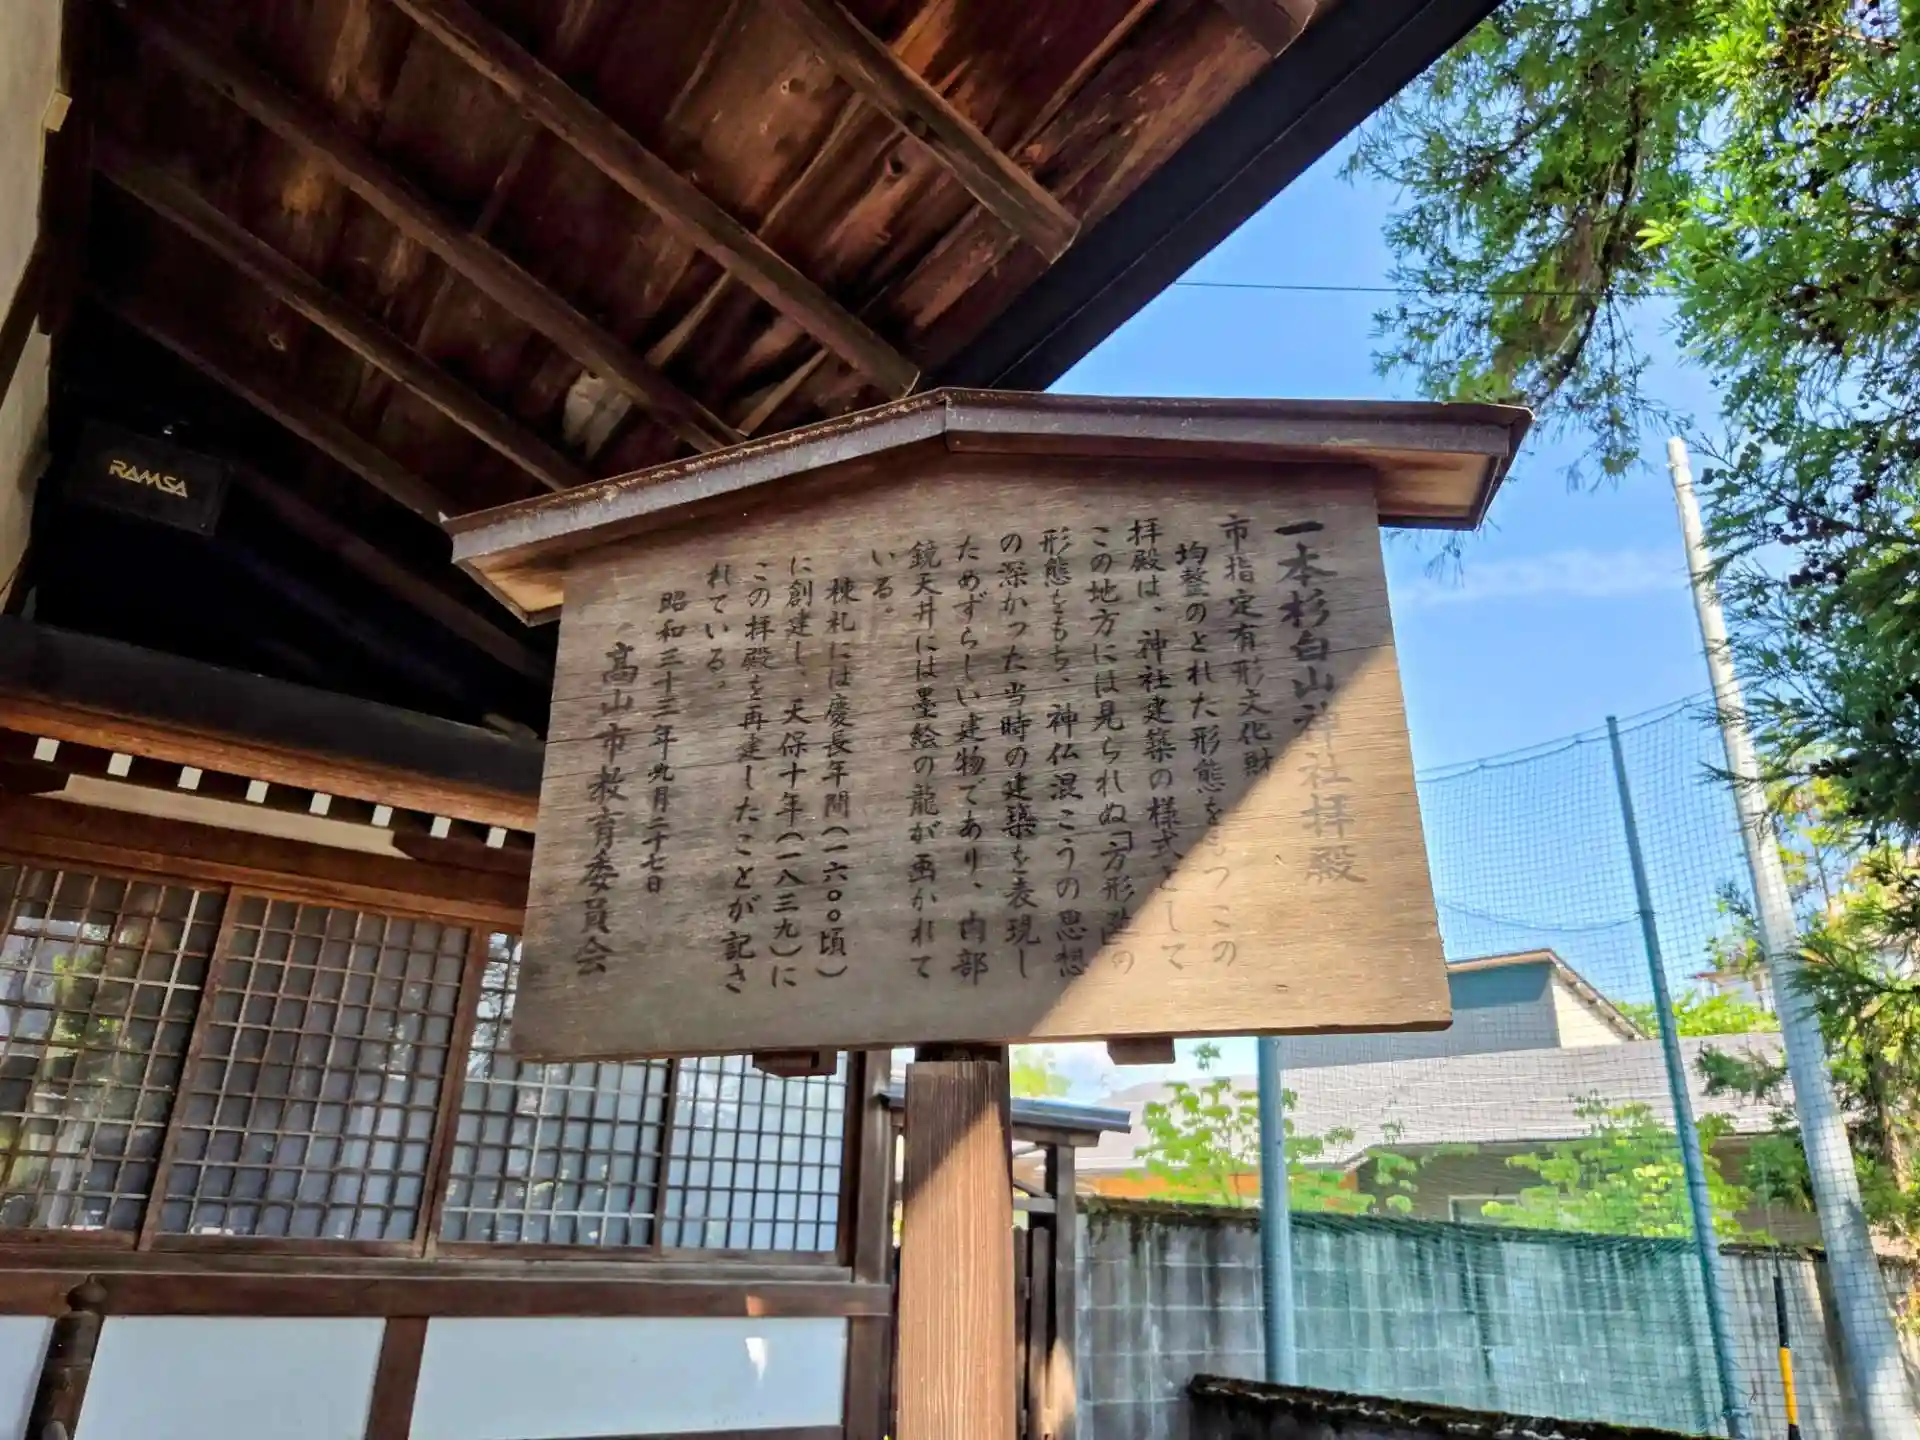 一本杉白山神社拝殿
市指定有形文化財
均整のとれた形態をもつこの
拝殿は、神社建築の様式として
この地方には見られぬ「方形造」の
形態をもち、神仏混こうの思想
の深かった当時の建築を表現し
ためずらしい建物であり、内部
鏡天井には墨絵の龍が画かれて
いる。
棟札には慶長年間(一六〇〇頃)
に創建し、天保十年(一八三九)に
この拝殿を再建したことが記さ
れている。
昭和三十三年 月二十七日
高山市教育委員会
RAMSA